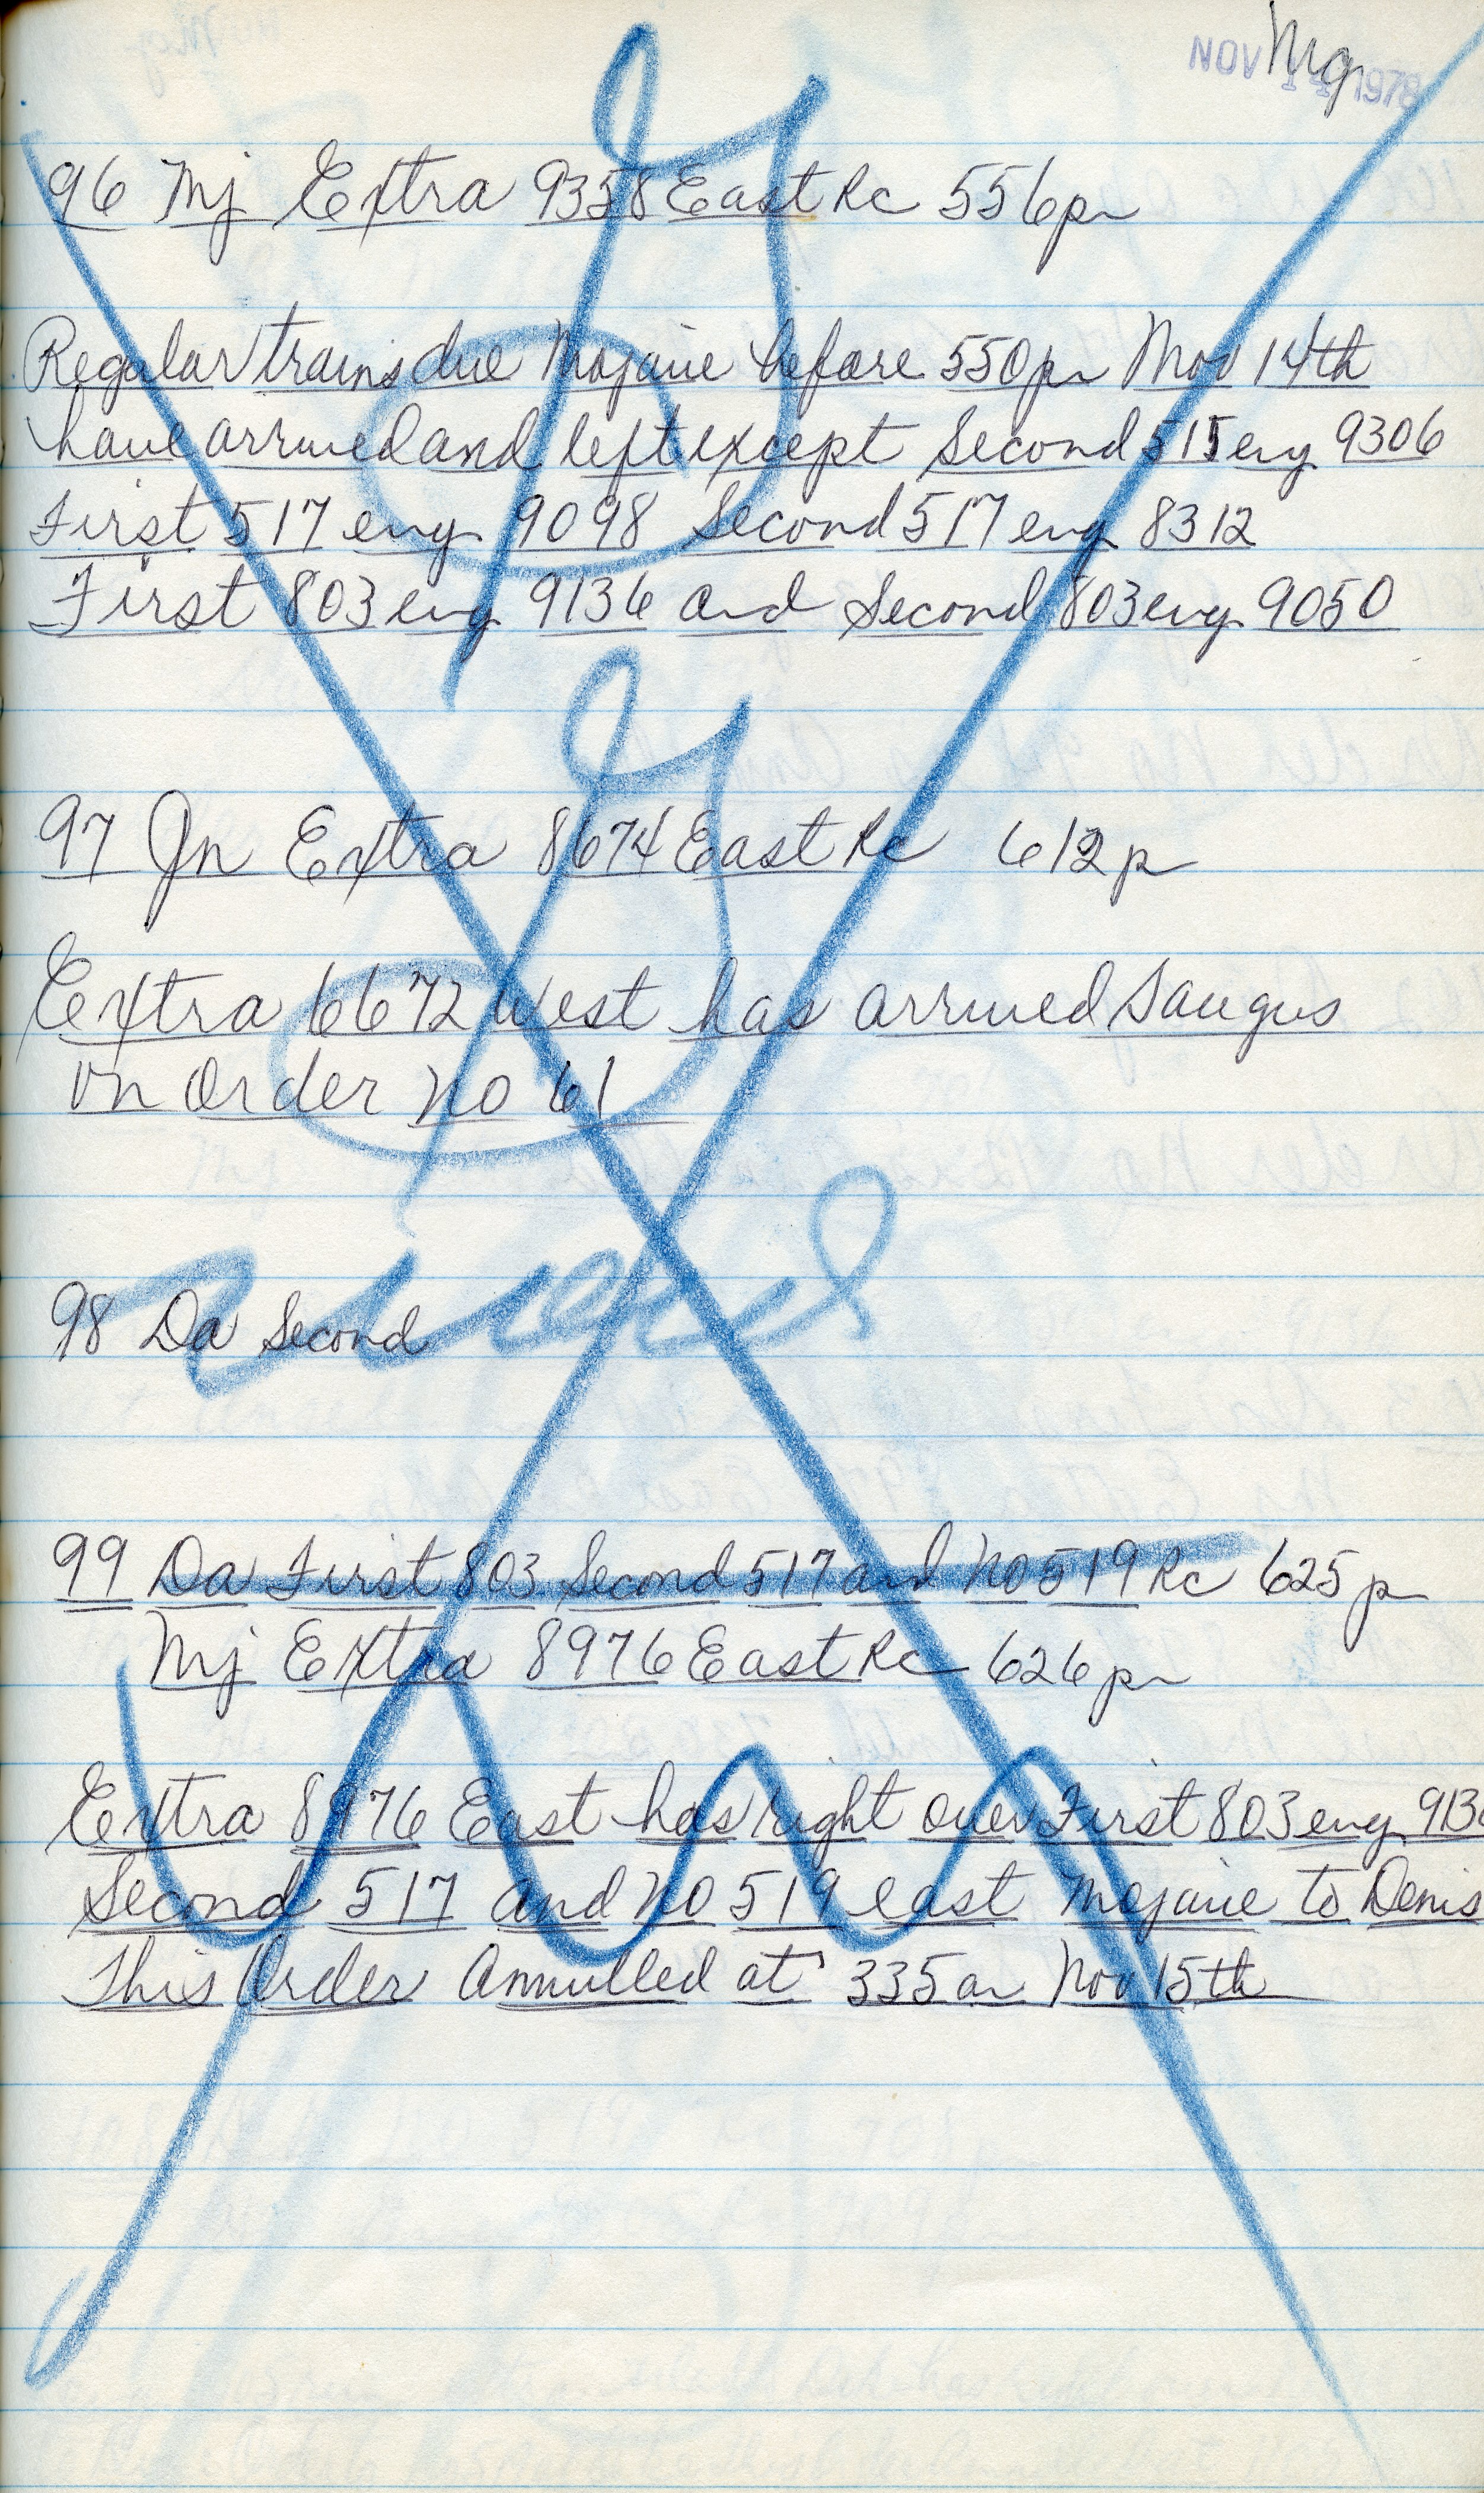 NOV 14 1978
Mg
96 Mj Extra 9358 East Rc 556p
Regular trains due Mojave before 550p Nov 14th
have arrived and left except Second 515 eng 9306
First 517 eng 9098 Second 517 eng 8312
First 803 eng 9136 and Second 803 eng 9050
97 Jn Extra 8674 East Rc 612p
Extra 6672 West has arrived Saugus
on Order No 61
98 Da Second
99 Da First 803 Second 517 and No 519 Rc 625p
Mj Extra 8976 East Rc 626p
Extra 8976 East has right over First 803 eng 913
Second 517 and No 519 east Mojave to Denis
This Order Annulled at 335a Nov 15th